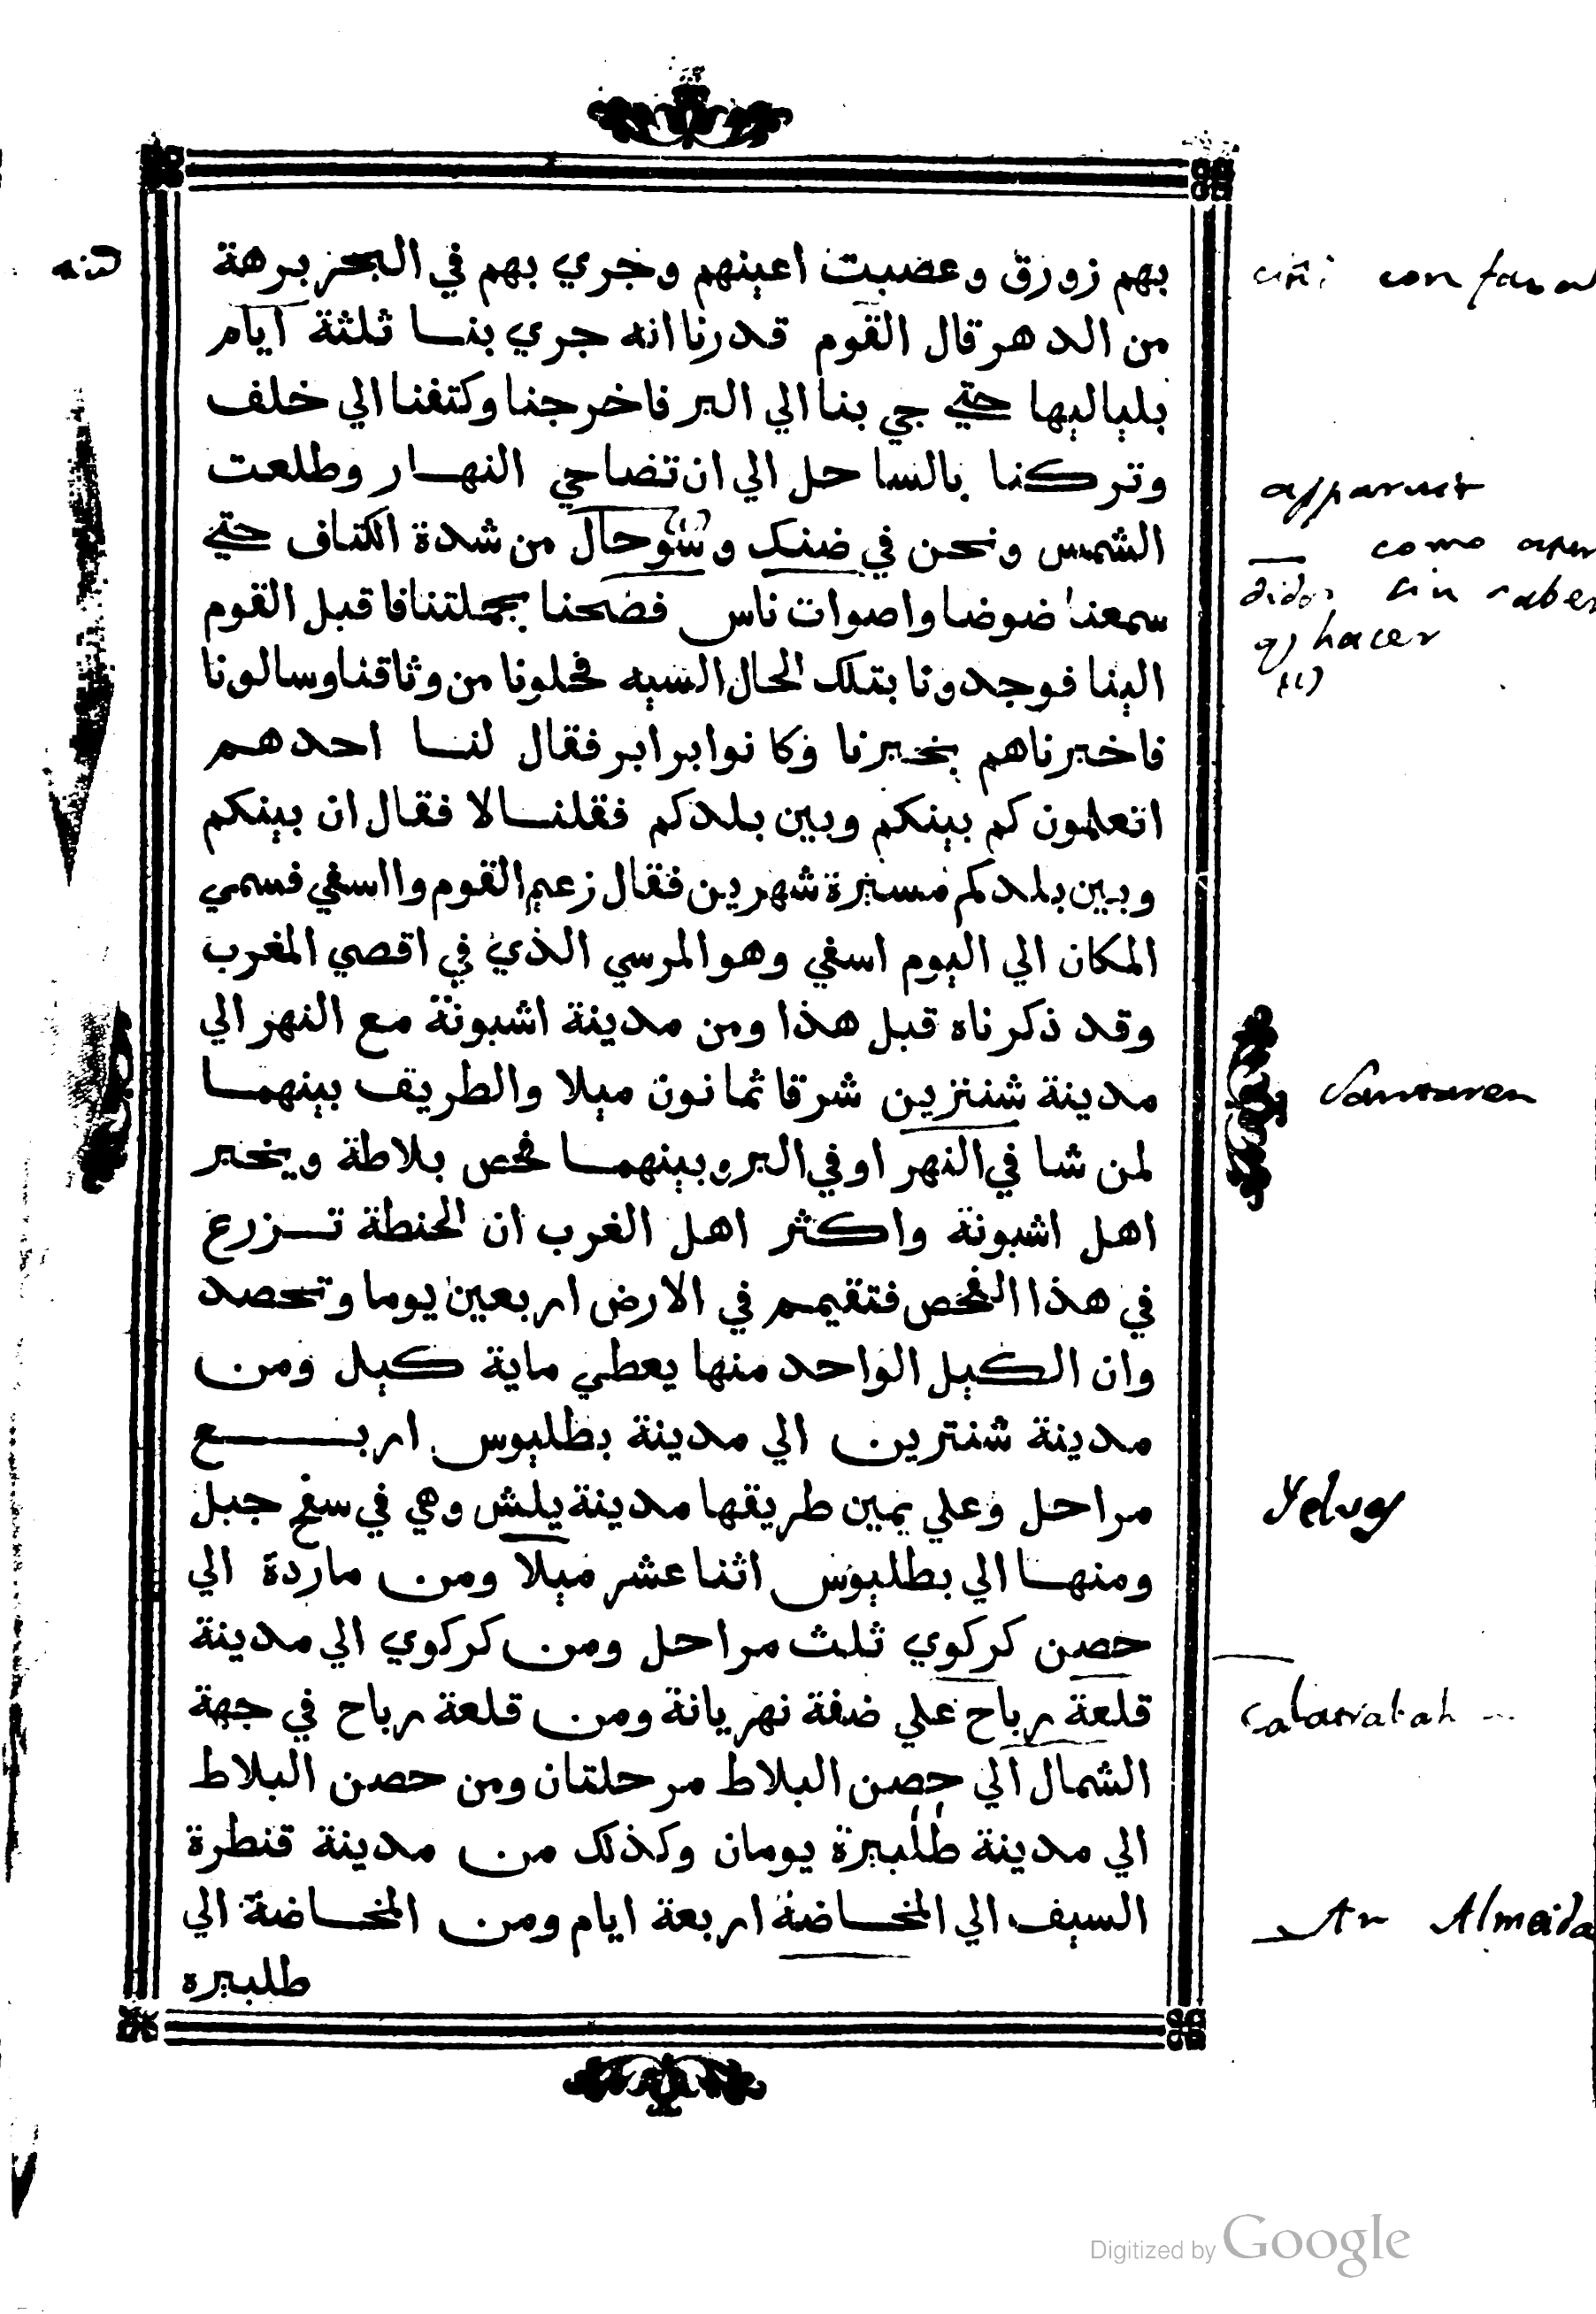 بهم زورق وعضبت اعينهم وجري بهم في البحر برهة
من الدهر قال القوم قدرنا انه جري بنا ثلثة ايام
بلياليها حتي جي بنا الي البر فاخرجنا وكتفنا الي خلف
وتركنا بالساحل الي ان تضاحي النهار وطلعت
الشمس ونحن في ضنك وسوحال من شدة الكتاف حتي
سمعنا ضوضا واصوات ناس فضحنا بجملتنا فاقبل القوم
الينا فوجدونا بتلك الحال السيه فحلونا من وثاقنا وسالونا
فاخبرناهم بخبرنا وكانوا برابر فقال لنا احدهم
اتعلمون كم بينكم وبين بلدكم فقلنا لا فقال ان بينكم
وبين بلدكم مسيرة شهرين فقال زعيم القوم وااسفي فسمي
المكان الي اليوم اسفي وهو المرسي الذي في اقصي المغرب
وقد ذكرناه قبل هذا ومن مدينة اشبونة مع النهر الي
مدينة شنترين شرقا ثمانون ميلا والطريف بينهما
لمن شا في النهر او في البر وبينهما فحص بلاطة ويخبر
اهل اشبونة واكثر اهل الغرب ان الحنطة تزرع
في هذا الفحص فتقيم في الارض اربعين يوما وتحصد
وان الكيل الواحد منها يعطي ماية كيل ومن
مدينة شنترين الي مدينة بطليوس اربع
مراحل وعلي يمين طريقها مدينة يلش وهي في سفح جبل
ومنها الي بطليوس اثنا عشر ميلا ومن ماردة الي
حصن كركوي ثلث مراحل ومن كركوي الي مدينة
قلعة رباح علي ضفة نهر يانة ومن قلعة رباح في جهة
الشمال الي حصن البلاط مرحلتان ومن حصن البلاط
الي مدينة طلبيرة يومان وكذلك من مدينة قنطرة
السيف الي المخاضة اربعة ايام ومن المخاضة الي
طلبيره
apparuit
como
sin saber
q) hacer
Santaren
Yelves
Calatrabah
An Almeida
Digitized by Google